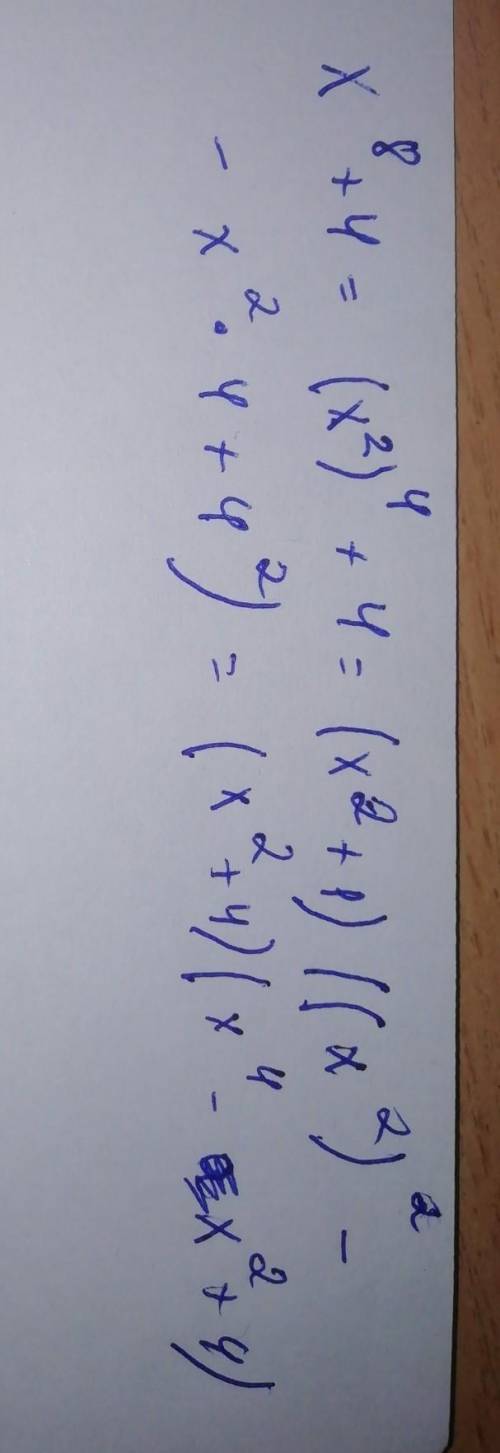 x⁸ + 4 = (x²)⁴ + 4 = (x² + 1)((x²)² -
- x² · 4 + 4²) = (x² + 4)(x⁴ - x² + 4)